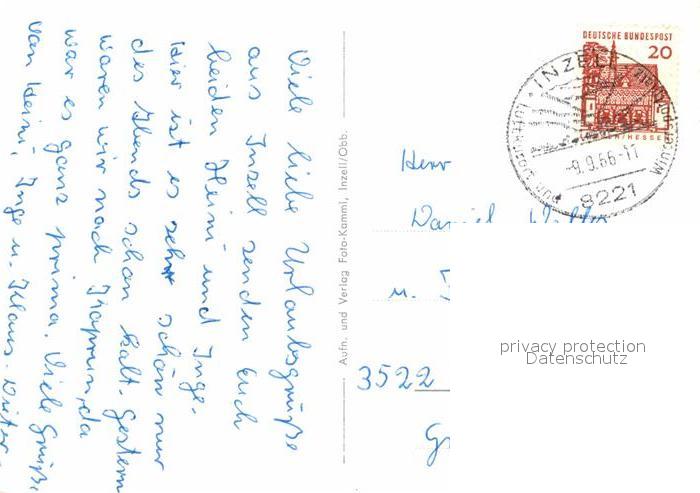 Viele liebe Urlaubsgrüße
aus Inzell senden Euch
beiden Heini und Inge.
Hier ist es sehr schön nur
des Abends schon kalt. Gestern
waren wir nach Kaprun, da
war es ganz prima. Viele Grüße
von Heini, Inge u. Klaus-Dieter.
Aufn. und Verlag Foto-Kamml, Inzell/Obb.
DEUTSCHE BUNDESPOST
20
INZELL
-9.9.66-17
8221
Luftkurort
Herr
Daniel
u.
3522
privacy protection
Datenschutz